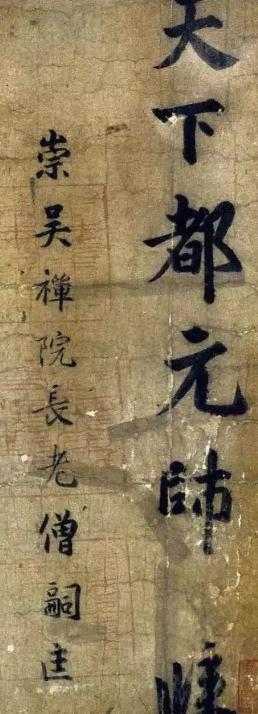 天下都元帥
崇吳禪院長老僧嗣匡